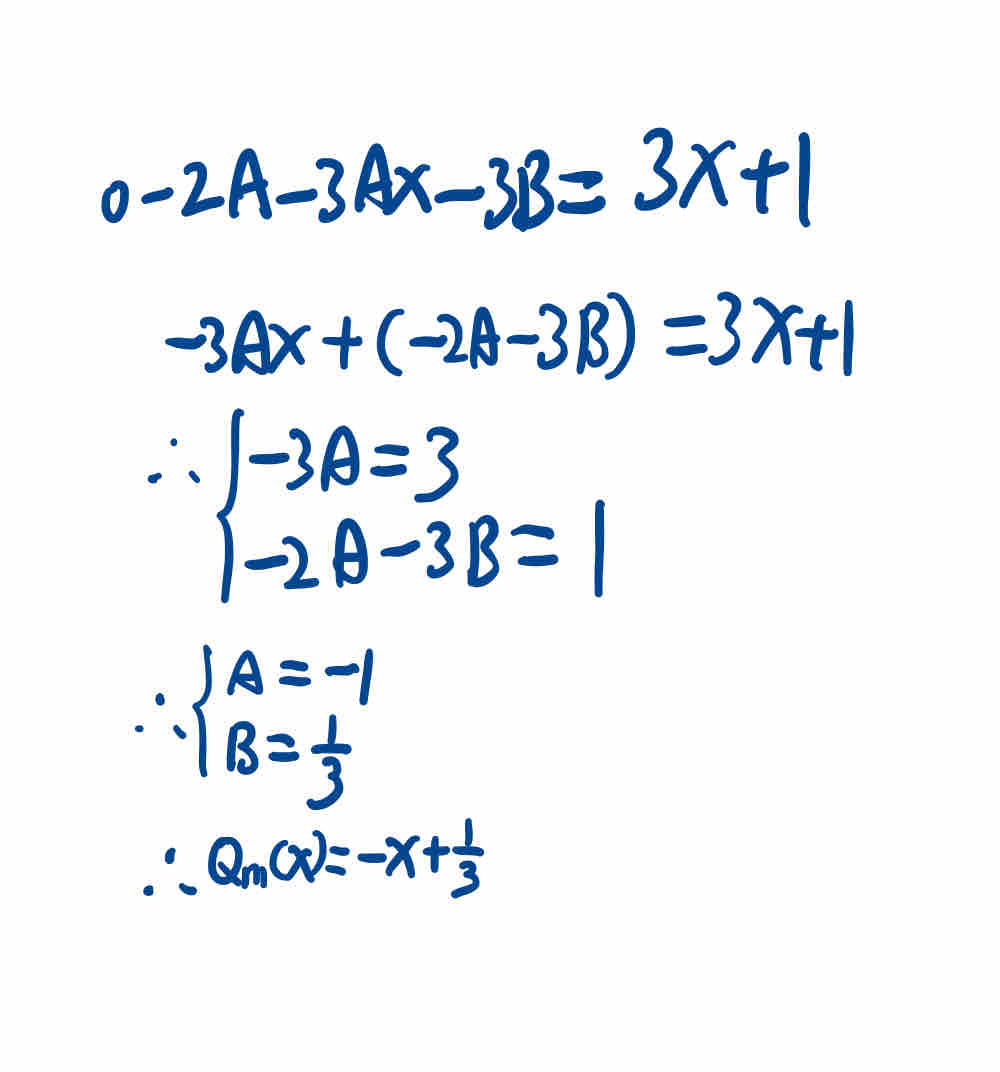 0-2A-3Ax-3B=3x+1
-3Ax+(-2A-3B)=3x+1
∴{-3A=3
-2A-3B=1
∴{A=-1
B=1/3
∴Qm(x)=-x+1/3